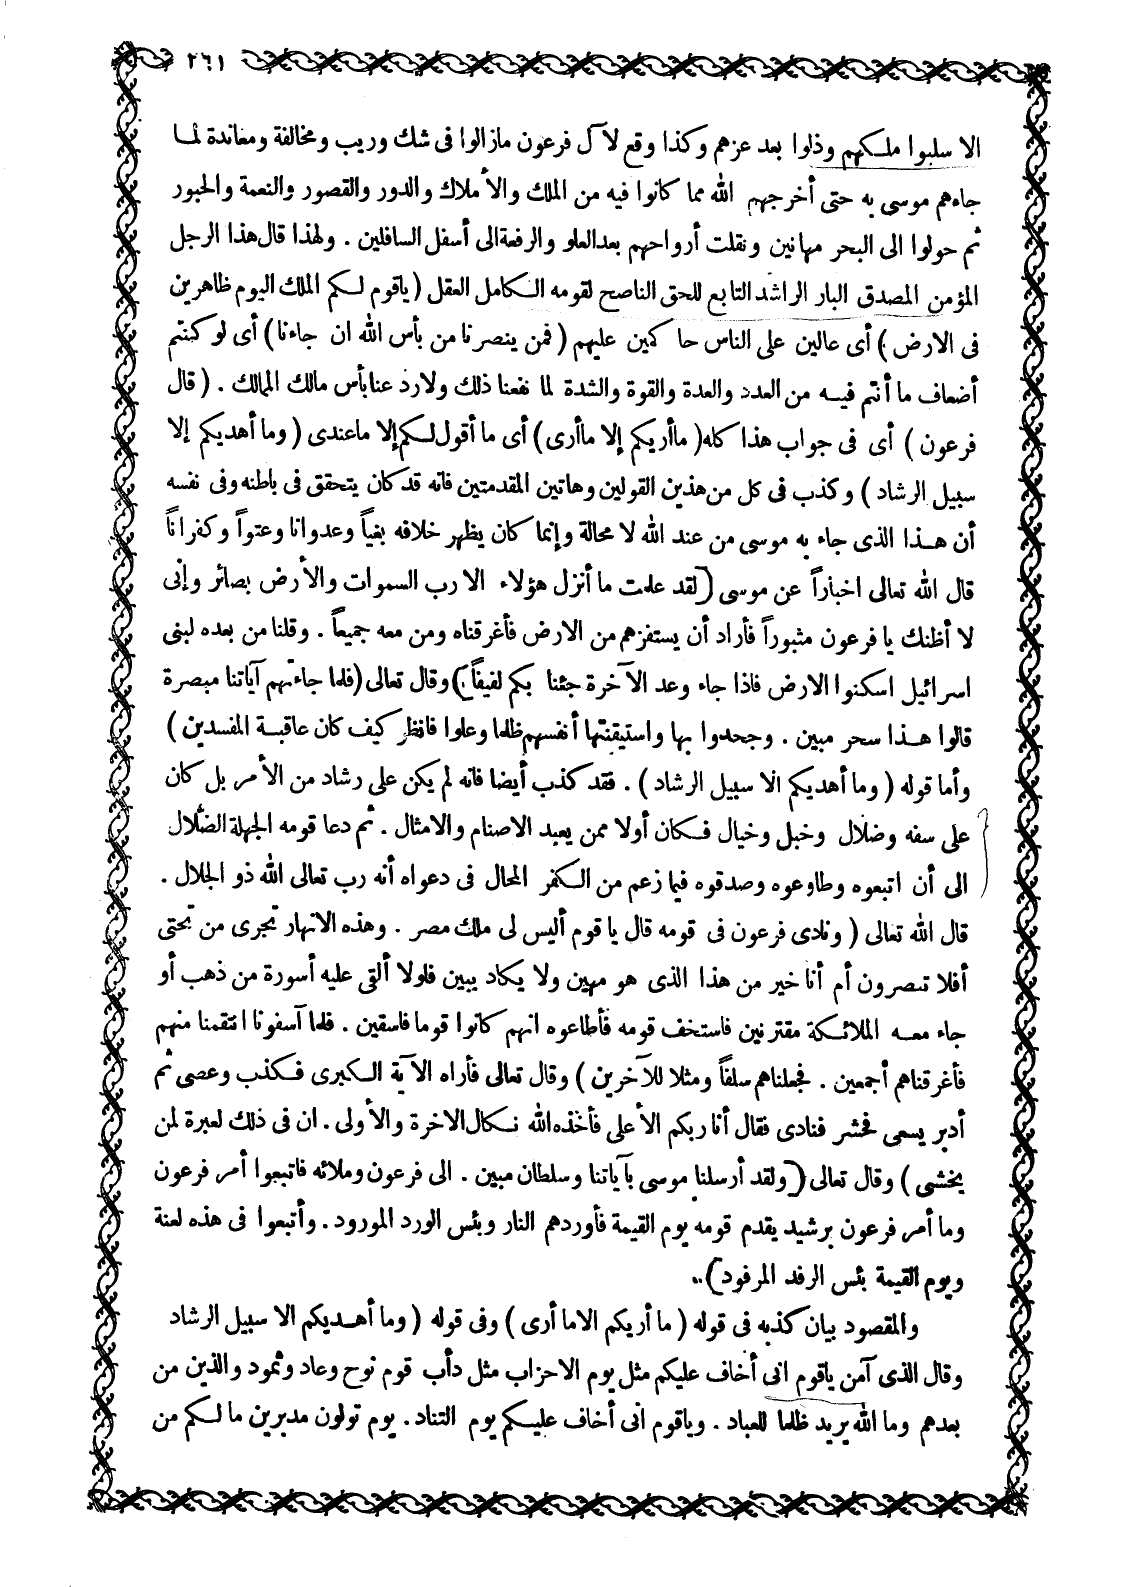 ٢٦١
الا سلبوا ملكهم وذلوا بعد عزهم وكذا وقع لآل فرعون مازالوا فى شك وريب ومخالفة ومعاندة لما
جاءهم موسى به حتى أخرجهم الله مما كانوا فيه من الملك والأملاك والدور والقصور والنعمة والحبور
ثم حولوا الى البحر مهانين ونقلت أرواحهم بعد العلو والرفعة الى أسفل السافلين . ولهذا قال هذا الرجل
المؤمن المصدق البار الراشد التابع للحق الناصح لقومه الكامل العقل ( ياقوم لكم الملك اليوم ظاهرين
فى الارض ) أى عالين على الناس حاكمين عليهم ( فمن ينصرنا من بأس الله ان جاءنا ) أى لو كنتم
أضعاف ما أنتم فيه من العدد والعدة والقوة والشدة لما نفعنا ذلك ولا رد عنا بأس مالك الممالك . ( قال
فرعون ) أى فى جواب هذا كله ( ماأريكم إلا ماأرى ) أى ما أقول لكم إلا ماعندى ( وما أهديكم إلا
سبيل الرشاد ) وكذب فى كل من هذين القولين وهاتين المقدمتين فانه قد كان يتحقق فى باطنه وفى نفسه
أن هذا الذى جاء به موسى من عند الله لا محالة وإنما كان يظهر خلافه بغياً وعدوانا وعتواً وكفراناً
قال الله تعالى اخباراً عن موسى ( لقد علمت ما أنزل هؤلاء الا رب السموات والأرض بصائر وإنى
لا أظنك يا فرعون مثبوراً فأراد أن يستفزهم من الارض فأغرقناه ومن معه جميعاً . وقلنا من بعده لبنى
اسرائيل اسكنوا الارض فاذا جاء وعد الآخرة جئنا بكم لفيفاً ) وقال تعالى ( فلما جاءتهم آياتنا مبصرة
قالوا هذا سحر مبين . وجحدوا بها واستيقنتها أنفسهم ظلما وعلوا فانظر كيف كان عاقبة المفسدين )
وأما قوله ( وما أهديكم الا سبيل الرشاد ) . فقد كذب أيضا فانه لم يكن على رشاد من الأمر بل كان
على سفه وضلال وخبل وخيال فكان أولا ممن يعبد الاصنام والامثال . ثم دعا قومه الجهلة الضلّال
الى أن اتبعوه وطاوعوه وصدقوه فيما زعم من الكفر المحال فى دعواه أنه رب تعالى الله ذو الجلال .
قال الله تعالى ( ونادى فرعون فى قومه قال يا قوم أليس لى ملك مصر . وهذه الانهار تجرى من تحتى
أفلا تبصرون أم أنا خير من هذا الذى هو مهين ولا يكاد يبين فلولا ألقى عليه أسورة من ذهب أو
جاء معه الملائكة مقترنين فاستخف قومه فأطاعوه انهم كانوا قوما فاسقين . فلما آسفونا انتقمنا منهم
فأغرقناهم أجمعين . فجعلناهم سلفاً ومثلا للآخرين ) وقال تعالى فأراه الآية الكبرى فكذب وعصى ثم
أدبر يسعى فحشر فنادى فقال أنا ربكم الأعلى فأخذه الله نكال الاخرة والأولى . ان فى ذلك لعبرة لمن
يخشى ) وقال تعالى ( ولقد أرسلنا موسى بآياتنا وسلطان مبين . الى فرعون وملائه فاتبعوا أمر فرعون
وما أمر فرعون برشيد يقدم قومه يوم القيمة فأوردهم النار وبئس الورد المورود . وأتبعوا فى هذه لعنة
ويوم القيمة بئس الرفد المرفود ) .
والمقصود بيان كذبه فى قوله ( ما أريكم الا ما أرى ) وفى قوله ( وما أهديكم الا سبيل الرشاد
وقال الذى آمن ياقوم انى أخاف عليكم مثل يوم الاحزاب مثل دأب قوم نوح وعاد وثمود والذين من
بعدهم وما الله يريد ظلما للعباد . وياقوم انى أخاف عليكم يوم التناد . يوم تولون مدبرين ما لكم من